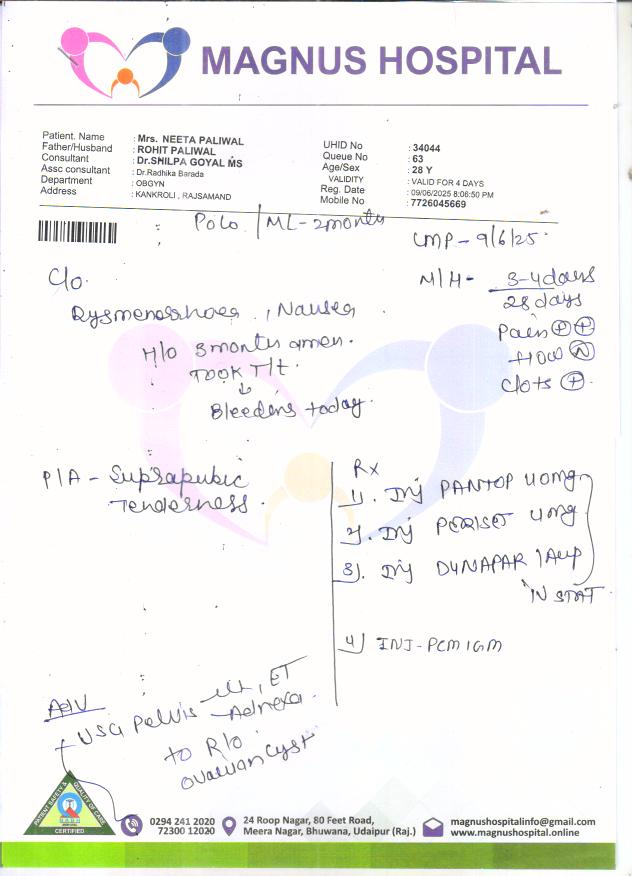 MAGNUS HOSPITAL
Patient. Name : Mrs. NEETA PALIWAL
Father/Husband : ROHIT PALIWAL
Consultant : Dr.SHILPA GOYAL MS
Assc consultant : Dr.Radhika Barada
Department : OBGYN
Address : KANKROLI , RAJSAMAND
UHID No : 34044
Queue No : 63
Age/Sex : 28 Y
VALIDITY : VALID FOR 4 DAYS
Reg. Date : 09/06/2025 8:06:50 PM
Mobile No : 7726045669
P0L0 / ML - 2months
LMP - 9/6/25.
C/o.
Dysmenorrhoea , Nausea
H/o 3 months amen.
TOOK T/t.
↓
Bleeding today.
M/H - 3-4days
28 days
Pain ⊕ ⊕
flow Ⓝ
Clots ⊕
P/A - Suprapubic
Tenderness.
Rx
1). Inj PANTOP 40mg
2). Inj PERISET 4mg
3). Inj DYNAPAR 1Amp
IN STAT
4) INJ - PCM 1GM
Adv
USG Pelvis - ut, ET
- Adnexa.
to R/o
ovarian cyst
PATIENT SAFETY & QUALITY OF CARE
CERTIFIED
0294 241 2020
72300 12020
24 Roop Nagar, 80 Feet Road,
Meera Nagar, Bhuwana, Udaipur (Raj.)
magnushospitalinfo@gmail.com
www.magnushospital.online